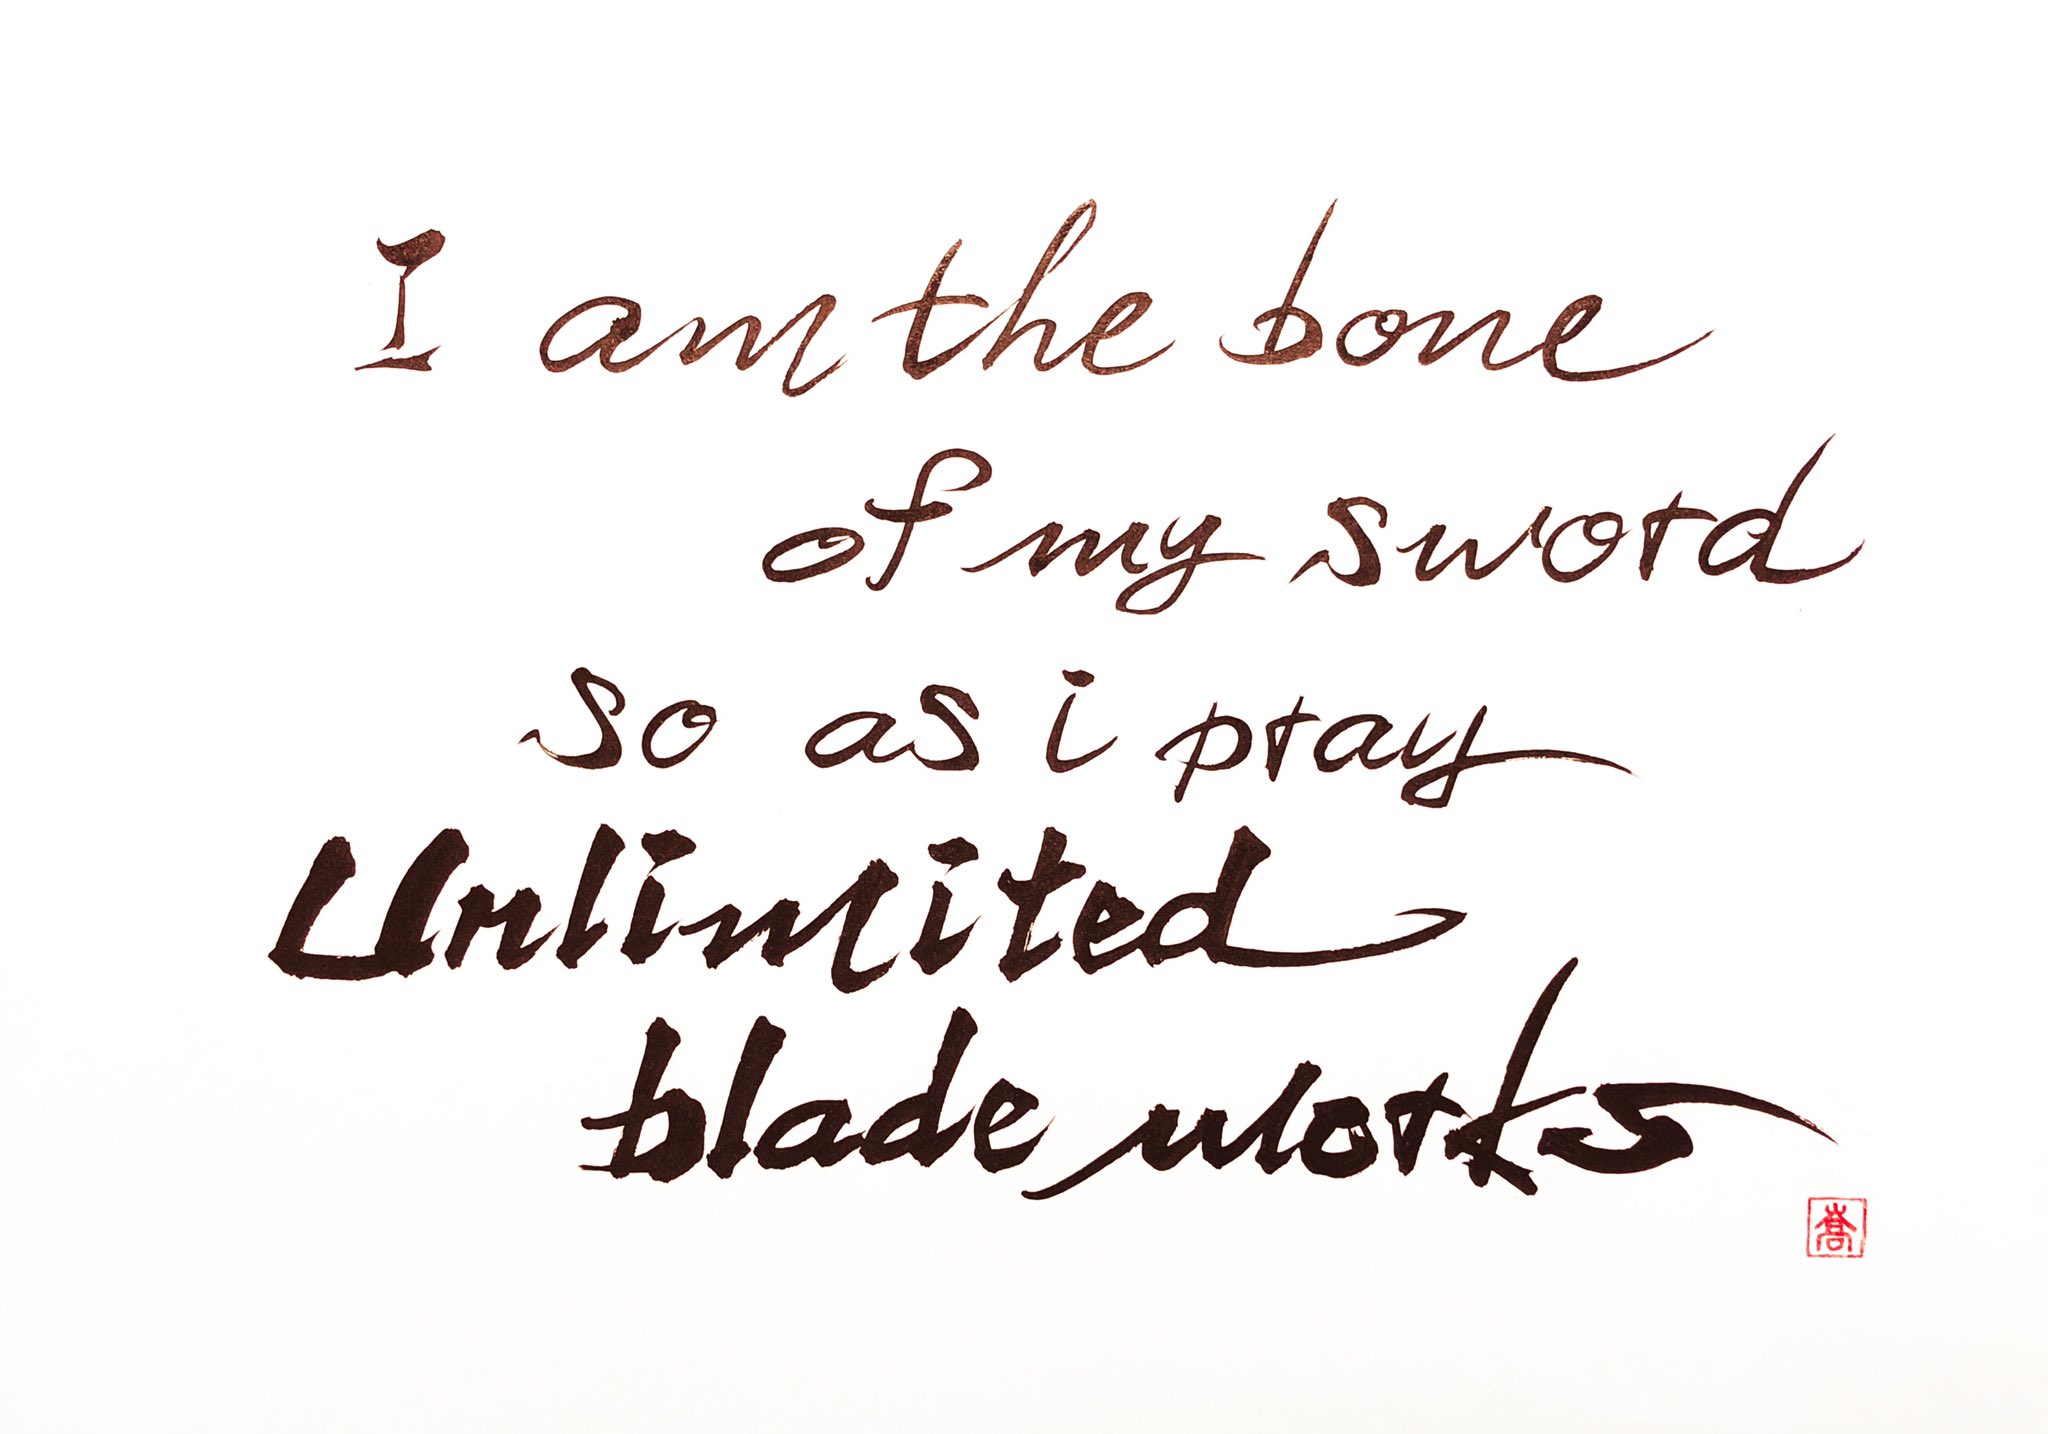 I am the bone
of my sword
so as i pray
Unlimited
blade works